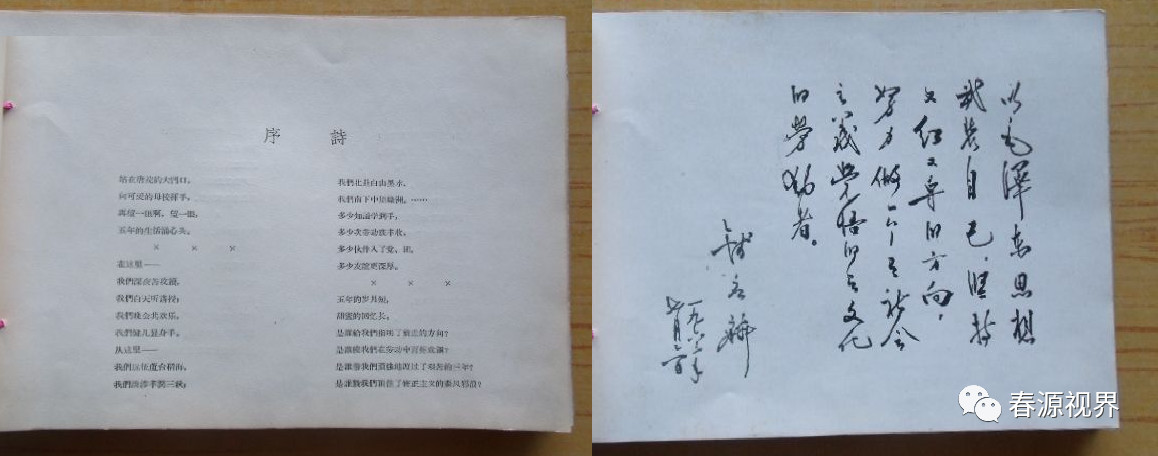 序 詩
站在唐 的大門口,
向可爱的母校揮手,
再望一眼啊,望一眼,
五年的生活涌心头。
× × ×
在这里——
我們深夜苦攻讀,
我們白天听講授;
我們晚会共欢乐,
我們健儿显身手。
从这里——
我們
我們 三峡;
我們北赴白山黑水,
我們南下中原綠洲。……
多少知識学到手,
多少次劳动获丰收,
多少伙伴入了党、团,
多少友誼更深厚。
× × ×
五年的岁月短,
甜蜜的回忆长。
是誰給我們指明了前进的方向?
是誰使我們在劳动中百炼成鋼?
是誰 我們 地渡过了艰苦的三年?
是誰教我們頂住了修正主义的歪风邪
以毛澤东思想
武装自己,坚持
又红又专的方向,
努力做一个有社会
主义觉悟的有文化
的劳动者。
一九六三年
七月
春源视界